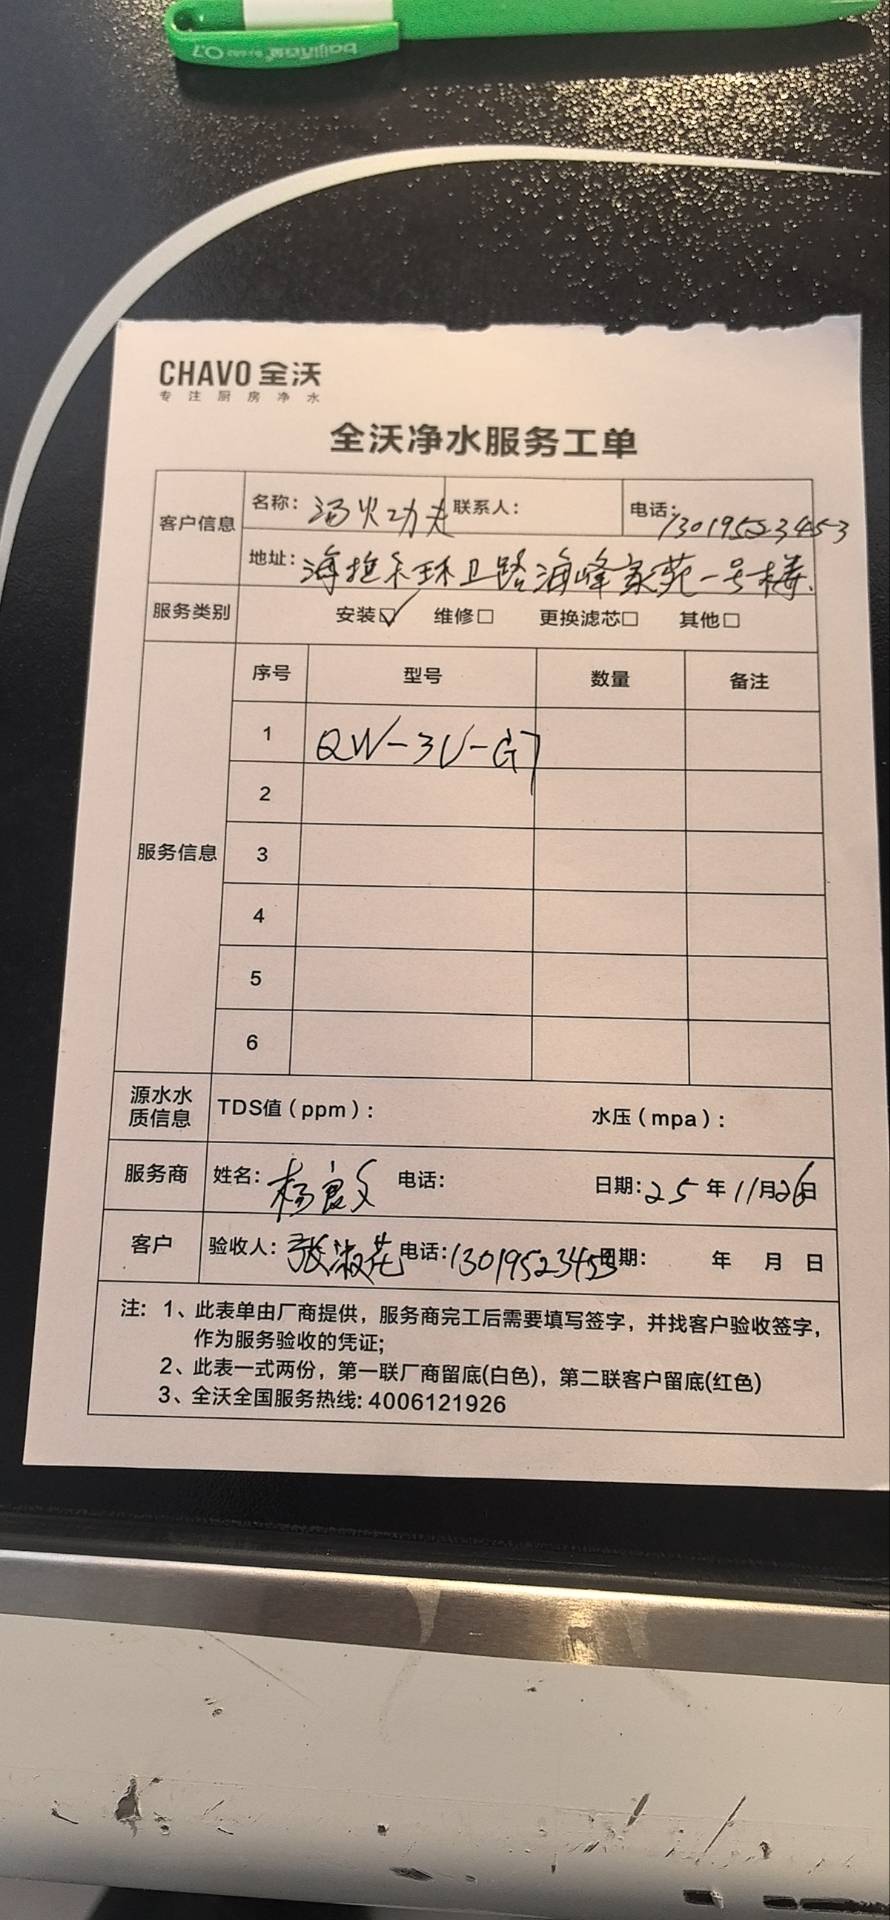 baijin百金 0.7
CHAVO 全沃
专注厨房净水
全沃净水服务工单
客户信息 名称：汤火功夫 联系人： 电话：13019523453
地址：海拉尔环卫路海峰家苑一号楼.
服务类别 安装☑ 维修□ 更换滤芯□ 其他□
服务信息 序号 型号 数量 备注
1 QW-3U-G7
2
3
4
5
6
源水水质信息 TDS值（ppm）： 水压（mpa）：
服务商 姓名：杨良文 电话： 日期：25年11月26日
客户 验收人：张淑花 电话：13019523453 日期： 年 月 日
注：1、此表单由厂商提供，服务商完工后需要填写签字，并找客户验收签字，
作为服务验收的凭证；
2、此表一式两份，第一联厂商留底(白色)，第二联客户留底(红色)
3、全沃全国服务热线：4006121926